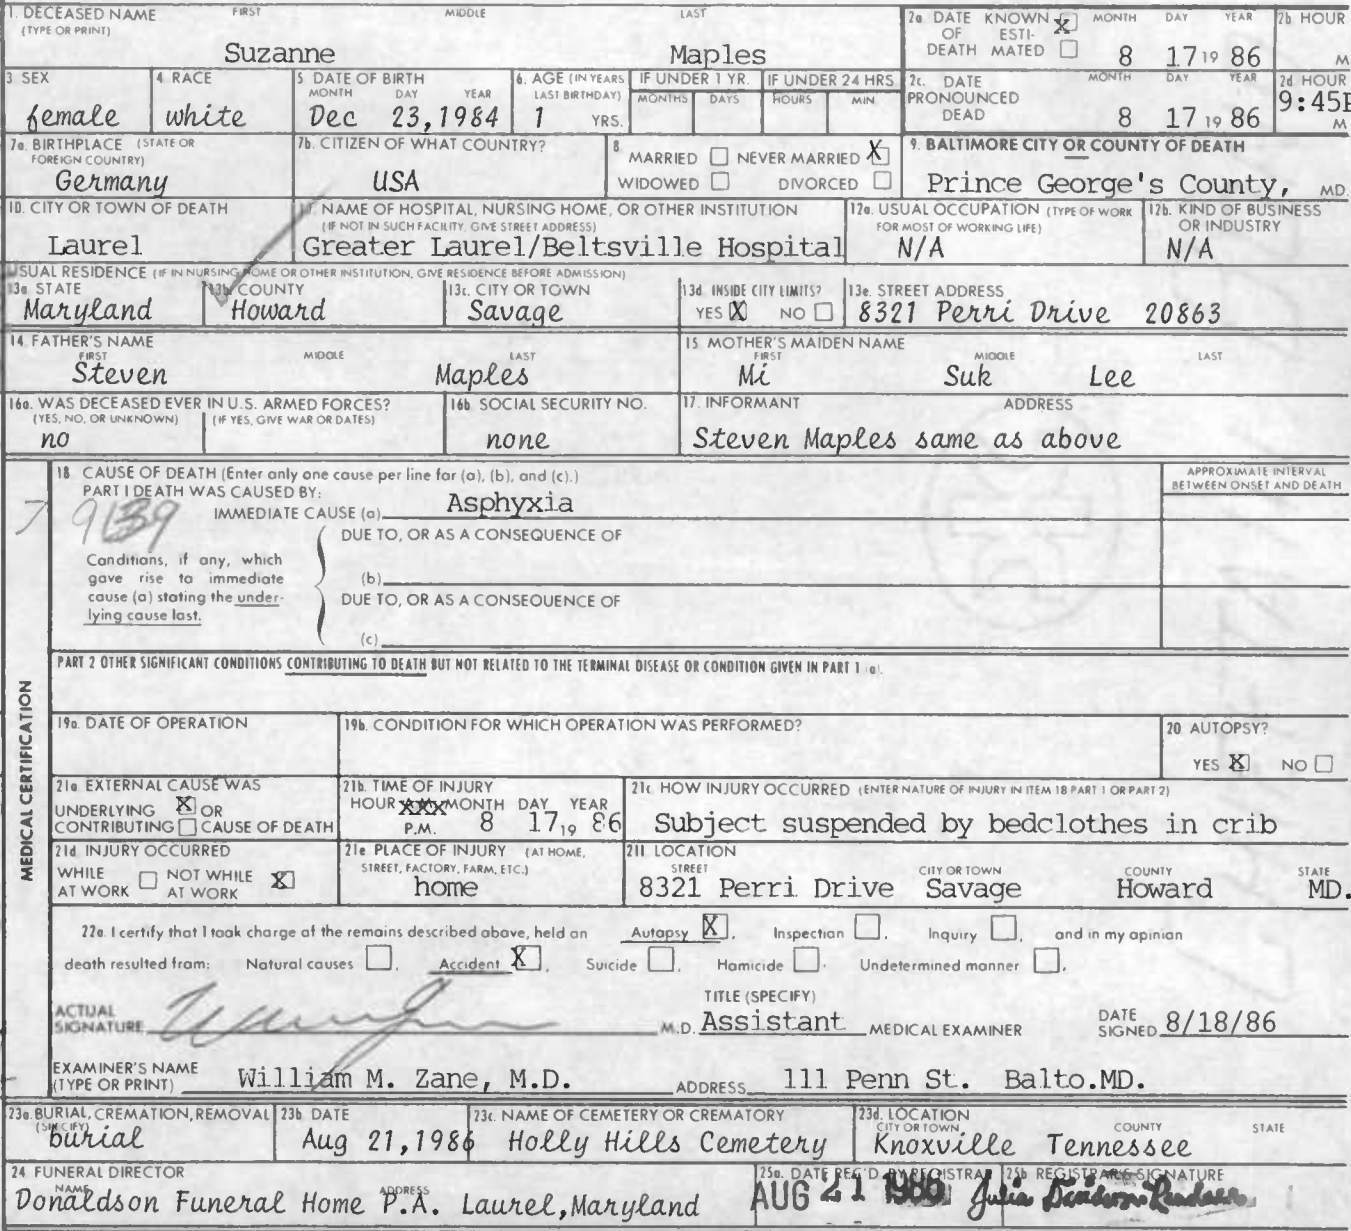 1. DECEASED NAME FIRST MIDDLE LAST
(TYPE OR PRINT)
Suzanne Maples
2a. DATE KNOWN X MONTH DAY YEAR
OF ESTI-
DEATH MATED 8 17 19 86
2b HOUR
M
3 SEX
female
4 RACE
white
5 DATE OF BIRTH
MONTH DAY YEAR
Dec 23,1984
6. AGE (IN YEARS
LAST BIRTHDAY)
1 YRS.
IF UNDER 1 YR.
MONTHS DAYS
IF UNDER 24 HRS
HOURS MIN
2c. DATE MONTH DAY YEAR
PRONOUNCED
DEAD 8 17 19 86
2d HOUR
9:45P
M
7a. BIRTHPLACE (STATE OR
FOREIGN COUNTRY)
Germany
7b. CITIZEN OF WHAT COUNTRY?
USA
8
MARRIED NEVER MARRIED X
WIDOWED DIVORCED
9. BALTIMORE CITY OR COUNTY OF DEATH
Prince George's County, MD.
10. CITY OR TOWN OF DEATH
Laurel
11. NAME OF HOSPITAL, NURSING HOME, OR OTHER INSTITUTION
(IF NOT IN SUCH FACILITY, GIVE STREET ADDRESS)
Greater Laurel/Beltsville Hospital
12a. USUAL OCCUPATION (TYPE OF WORK
FOR MOST OF WORKING LIFE)
N/A
12b. KIND OF BUSINESS
OR INDUSTRY
N/A
USUAL RESIDENCE (IF IN NURSING HOME OR OTHER INSTITUTION, GIVE RESIDENCE BEFORE ADMISSION)
13a STATE
Maryland
13b. COUNTY
Howard
13c. CITY OR TOWN
Savage
13d. INSIDE CITY LIMITS?
YES X NO
13e. STREET ADDRESS
8321 Perri Drive 20863
14. FATHER'S NAME
FIRST MIDDLE LAST
Steven Maples
15. MOTHER'S MAIDEN NAME
FIRST MIDDLE LAST
Mi Suk Lee
16a. WAS DECEASED EVER IN U.S. ARMED FORCES?
(YES, NO, OR UNKNOWN) (IF YES, GIVE WAR OR DATES)
no
16b. SOCIAL SECURITY NO.
none
17. INFORMANT ADDRESS
Steven Maples same as above
MEDICAL CERTIFICATION
18 CAUSE OF DEATH (Enter only one cause per line for (a), (b), and (c).)
PART I DEATH WAS CAUSED BY:
IMMEDIATE CAUSE (a) Asphyxia
7 9139
APPROXIMATE INTERVAL
BETWEEN ONSET AND DEATH
DUE TO, OR AS A CONSEQUENCE OF
Conditions, if any, which
gave rise to immediate
cause (a) stating the under-
lying cause last.
(b)
DUE TO, OR AS A CONSEQUENCE OF
(c)
PART 2 OTHER SIGNIFICANT CONDITIONS CONTRIBUTING TO DEATH BUT NOT RELATED TO THE TERMINAL DISEASE OR CONDITION GIVEN IN PART 1 (a).
19a. DATE OF OPERATION
19b. CONDITION FOR WHICH OPERATION WAS PERFORMED?
20 AUTOPSY?
YES X NO
21a EXTERNAL CAUSE WAS
UNDERLYING X OR
CONTRIBUTING CAUSE OF DEATH
21b. TIME OF INJURY
HOUR XXX MONTH DAY YEAR
P.M. 8 17 19 86
21c. HOW INJURY OCCURRED (ENTER NATURE OF INJURY IN ITEM 18 PART 1 OR PART 2)
Subject suspended by bedclothes in crib
21d INJURY OCCURRED
WHILE NOT WHILE
AT WORK AT WORK X
21e PLACE OF INJURY (AT HOME,
STREET, FACTORY, FARM, ETC.)
home
21f LOCATION
STREET CITY OR TOWN COUNTY STATE
8321 Perri Drive Savage Howard MD.
22a. I certify that I took charge of the remains described above, held an Autopsy X, Inspection , Inquiry , and in my opinion
death resulted from: Natural causes , Accident X, Suicide , Homicide , Undetermined manner ,
ACTUAL
SIGNATURE M.D.
TITLE (SPECIFY)
Assistant MEDICAL EXAMINER
DATE
SIGNED 8/18/86
EXAMINER'S NAME
(TYPE OR PRINT) William M. Zane, M.D. ADDRESS 111 Penn St. Balto.MD.
23a. BURIAL, CREMATION, REMOVAL
(SPECIFY)
burial
23b DATE
Aug 21,1986
23c. NAME OF CEMETERY OR CREMATORY
Holly Hills Cemetery
23d. LOCATION
CITY OR TOWN COUNTY STATE
Knoxville Tennessee
24 FUNERAL DIRECTOR
NAME ADDRESS
Donaldson Funeral Home P.A. Laurel,Maryland
25a. DATE REC'D BY REGISTRAR
AUG 21 1986
25b REGISTRAR'S SIGNATURE
Julia